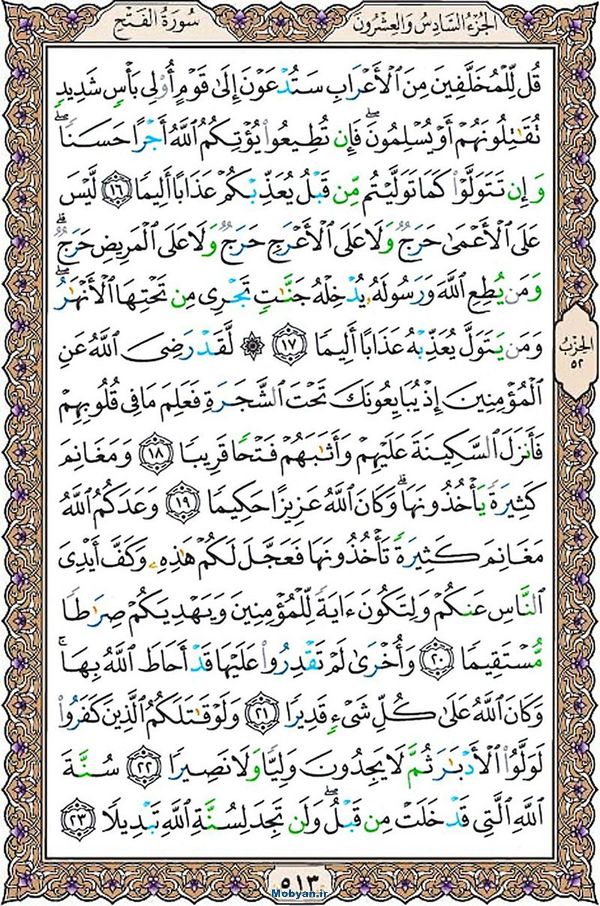 الجزء السادس والعشرون
سورة الفتح
قُل لِّلْمُخَلَّفِينَ مِنَ ٱلْأَعْرَابِ سَتُدْعَوْنَ إِلَىٰ قَوْمٍ أُو۟لِى بَأْسٍ شَدِيدٍ
تُقَـٰتِلُونَهُمْ أَوْ يُسْلِمُونَ ۖ فَإِن تُطِيعُوا۟ يُؤْتِكُمُ ٱللَّهُ أَجْرًا حَسَنًا ۖ
وَإِن تَتَوَلَّوْا۟ كَمَا تَوَلَّيْتُم مِّن قَبْلُ يُعَذِّبْكُمْ عَذَابًا أَلِيمًا ١٦ لَّيْسَ
عَلَى ٱلْأَعْمَىٰ حَرَجٌ وَلَا عَلَى ٱلْأَعْرَجِ حَرَجٌ وَلَا عَلَى ٱلْمَرِيضِ حَرَجٌ ۗ
وَمَن يُطِعِ ٱللَّهَ وَرَسُولَهُۥ يُدْخِلْهُ جَنَّـٰتٍ تَجْرِى مِن تَحْتِهَا ٱلْأَنْهَـٰرُ ۖ
وَمَن يَتَوَلَّ يُعَذِّبْهُ عَذَابًا أَلِيمًا ١٧ ۞ لَّقَدْ رَضِىَ ٱللَّهُ عَنِ
ٱلْمُؤْمِنِينَ إِذْ يُبَايِعُونَكَ تَحْتَ ٱلشَّجَرَةِ فَعَلِمَ مَا فِى قُلُوبِهِمْ
فَأَنزَلَ ٱلسَّكِينَةَ عَلَيْهِمْ وَأَثَـٰبَهُمْ فَتْحًا قَرِيبًا ١٨ وَمَغَانِمَ
كَثِيرَةً يَأْخُذُونَهَا ۗ وَكَانَ ٱللَّهُ عَزِيزًا حَكِيمًا ١٩ وَعَدَكُمُ ٱللَّهُ
مَغَانِمَ كَثِيرَةً تَأْخُذُونَهَا فَعَجَّلَ لَكُمْ هَـٰذِهِۦ وَكَفَّ أَيْدِىَ
ٱلنَّاسِ عَنكُمْ وَلِتَكُونَ ءَايَةً لِّلْمُؤْمِنِينَ وَيَهْدِيَكُمْ صِرَٰطًا
مُّسْتَقِيمًا ٢٠ وَأُخْرَىٰ لَمْ تَقْدِرُوا۟ عَلَيْهَا قَدْ أَحَاطَ ٱللَّهُ بِهَا ۚ
وَكَانَ ٱللَّهُ عَلَىٰ كُلِّ شَىْءٍ قَدِيرًا ٢١ وَلَوْ قَـٰتَلَكُمُ ٱلَّذِينَ كَفَرُوا۟
لَوَلَّوُا۟ ٱلْأَدْبَـٰرَ ثُمَّ لَا يَجِدُونَ وَلِيًّا وَلَا نَصِيرًا ٢٢ سُنَّةَ
ٱللَّهِ ٱلَّتِى قَدْ خَلَتْ مِن قَبْلُ ۖ وَلَن تَجِدَ لِسُنَّةِ ٱللَّهِ تَبْدِيلًا ٢٣
الحزب
٥٢
٥١٣
Mobyan.ir